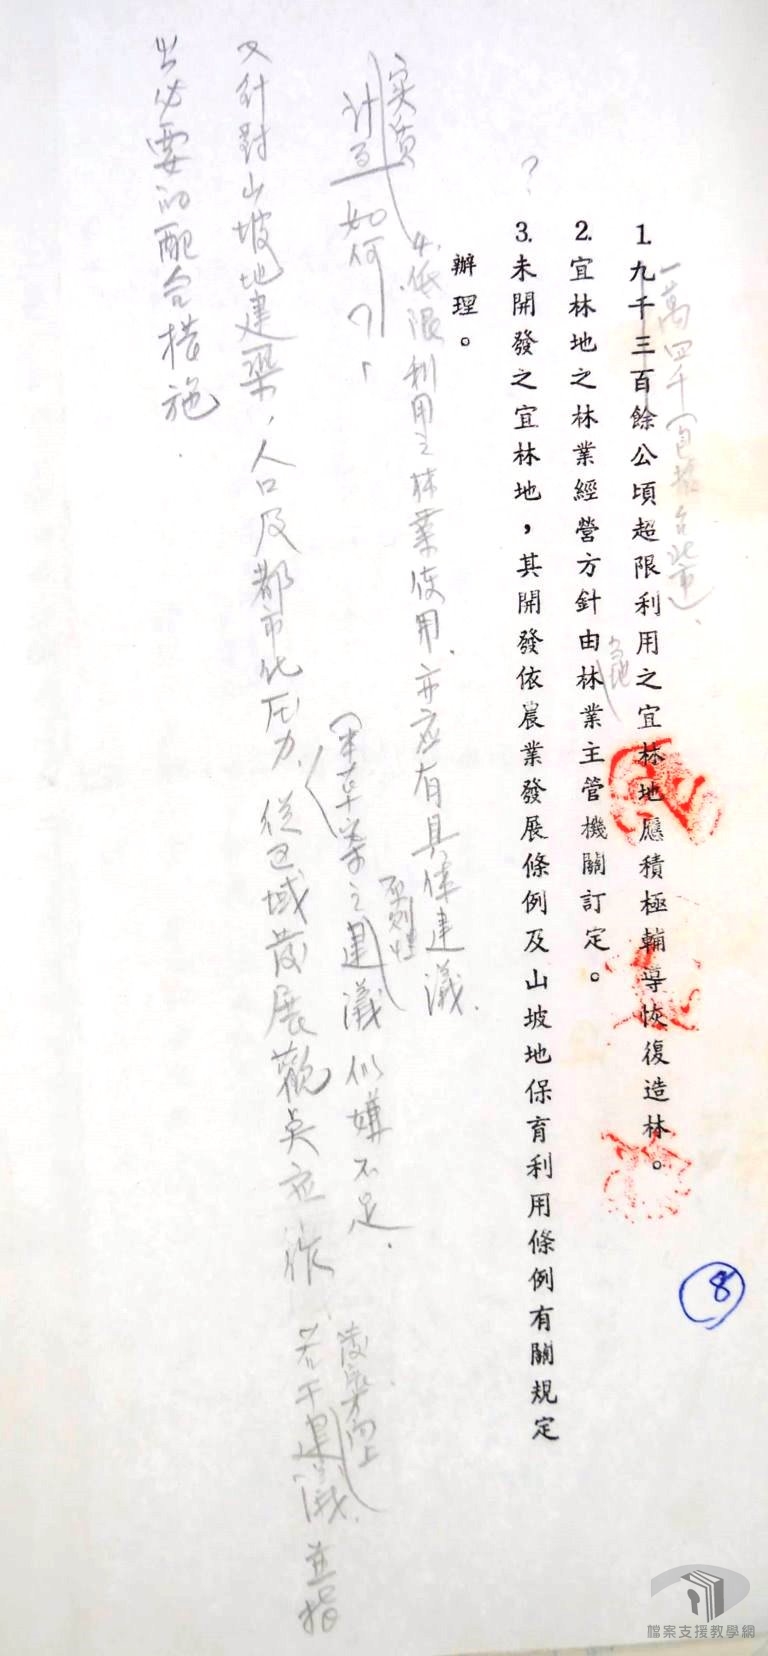 一萬四千(包括台北市)、
1.九千三百餘公頃超限利用之宜林地應積極輔導恢復造林。
2.宜林地之林業經營方針由林業主管機關訂定。
當地
3.未開發之宜林地，其開發依農業發展條例及山坡地保育利用條例有關規定
辦理。
?
4.低限利用之林業使用、亦應有具体建議.
实質
计画如何?
原則性
(本草案之建議似嫌不足.
又針對山坡地建築、人口及都市化压力、從区域發展觀点应作
若干建議.並指
出必要的配合措施.
8
檔案支援教學網